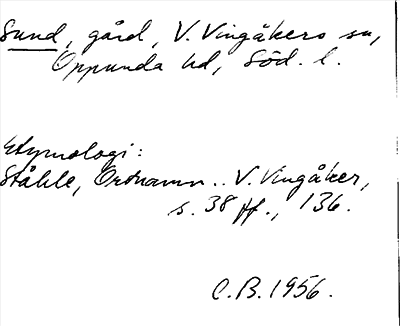 Sund, gård, V. Vingåkers sn,
Oppunda hd, Söd. l.
Etymologi:
Ståhle, Ortnamn.. V. Vingåker,
s. 38 ff., 136.
C.B. 1956.